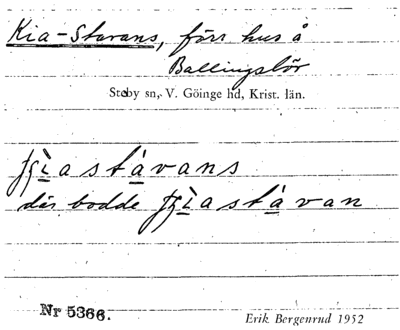 Kia-Stavans, förr hus å
Ballingslöv
Stoby sn, V. Göinge hd, Krist. län.
där bodde
Nr 5366.
Erik Bergenrud 1952